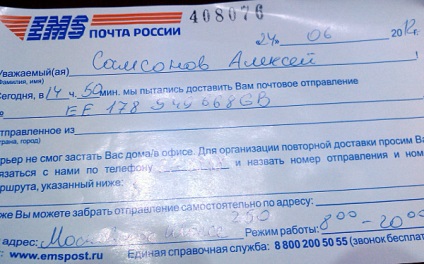 EMS ПОЧТА РОССИИ 408076
24 06 2012г.
Уважаемый(ая) Самсонов Алексей
Фамилия, имя)
Сегодня, в 14 ч. 50 мин. мы пытались доставить Вам почтовое отправление
EE 178 068GB
тправленное из
рана, город)
рьер не смог застать Вас дома/в офисе. Для организации повторной доставки просим Ва
язаться с нами по телефону и назвать номер отправления и ном
ршрута, указанный ниже:
же Вы можете забрать отправление самостоятельно по адресу:
250
адрес: Режим работы: 8 00 - 20 00
www.emspost.ru Единая справочная служба: 8 800 200 50 55 (звонок бесплат